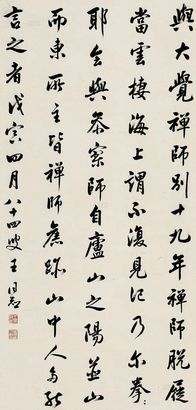 與大覺禪師別十九年禪師脫屣
當雲棲海上謂不復見記乃尔拳〻
耶會與參寥師自廬山之陽並山
而東所至皆禪師舊跡山中人多能
言之者戊寅四月八十四叟王同愈